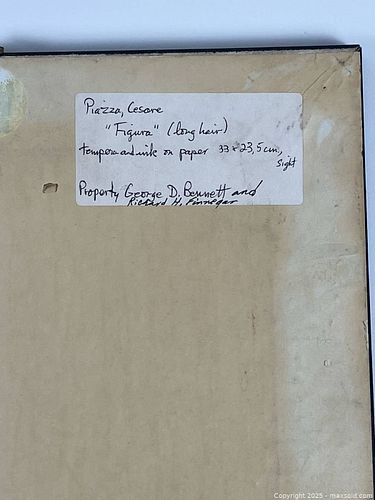 Piazza, Cesare
"Figura" (long hair)
tempera and ink on paper 33 x 23,5 cm,
sight
Property George D. Bennett and
Richard H. Finnegar
Copyright 2025 - maxsold.com